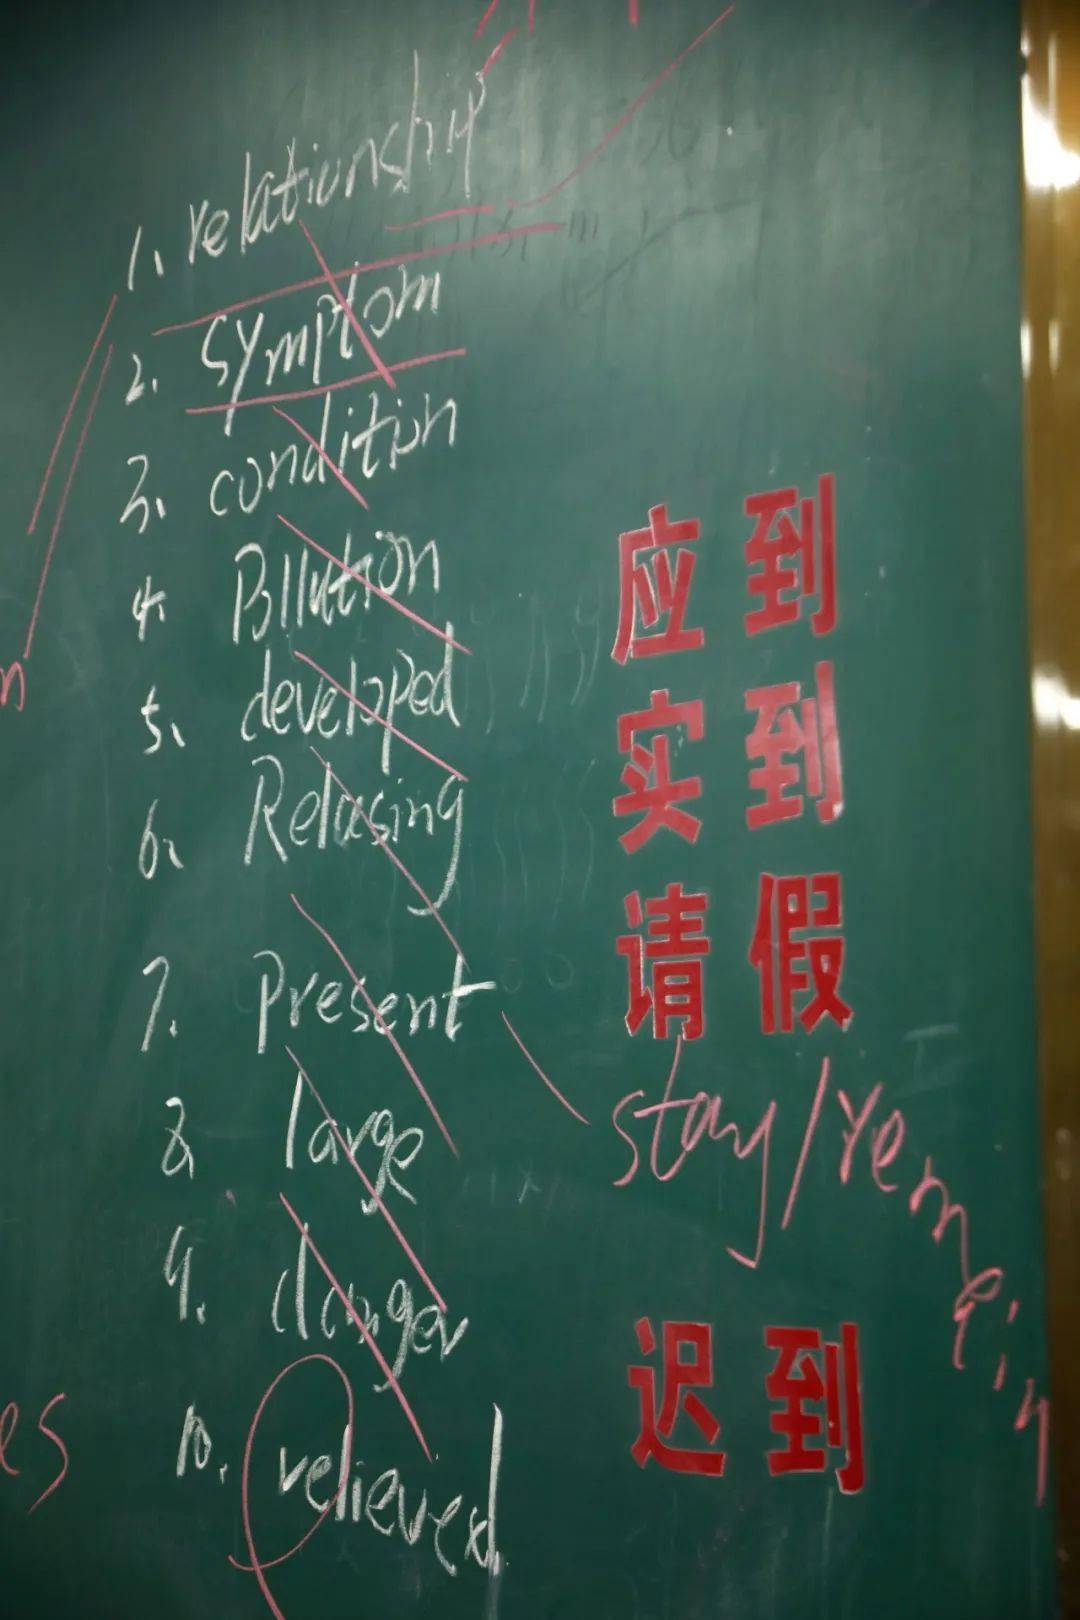 1. relationship
2. symptom
3. condition
4. Pollution
5. developed
6. Relasing
7. Present
8. large
9. danger
10. relieved.
应到
实到
请假
stay/remain
迟到
es
n